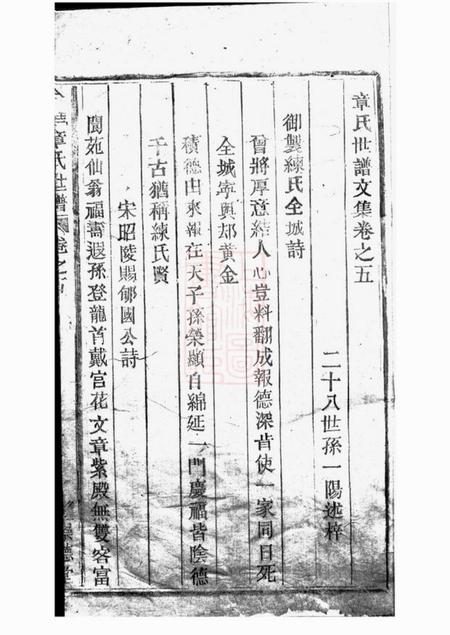 章氏世譜文集卷之五
二十八世孫一陽述梓
御製練氏全城詩
曾將厚意結人心豈料翻成報德深肯使一家同日死
全城寧與却黃金
積德由來報在天子孫榮顯自綿延一門慶福皆陰德
千古猶稱練氏賢
宋昭陵賜郇國公詩
閬苑仙翁福壽遐孫登龍首戴宮花文章紫殿無雙客富
章氏世譜 卷之
德堂